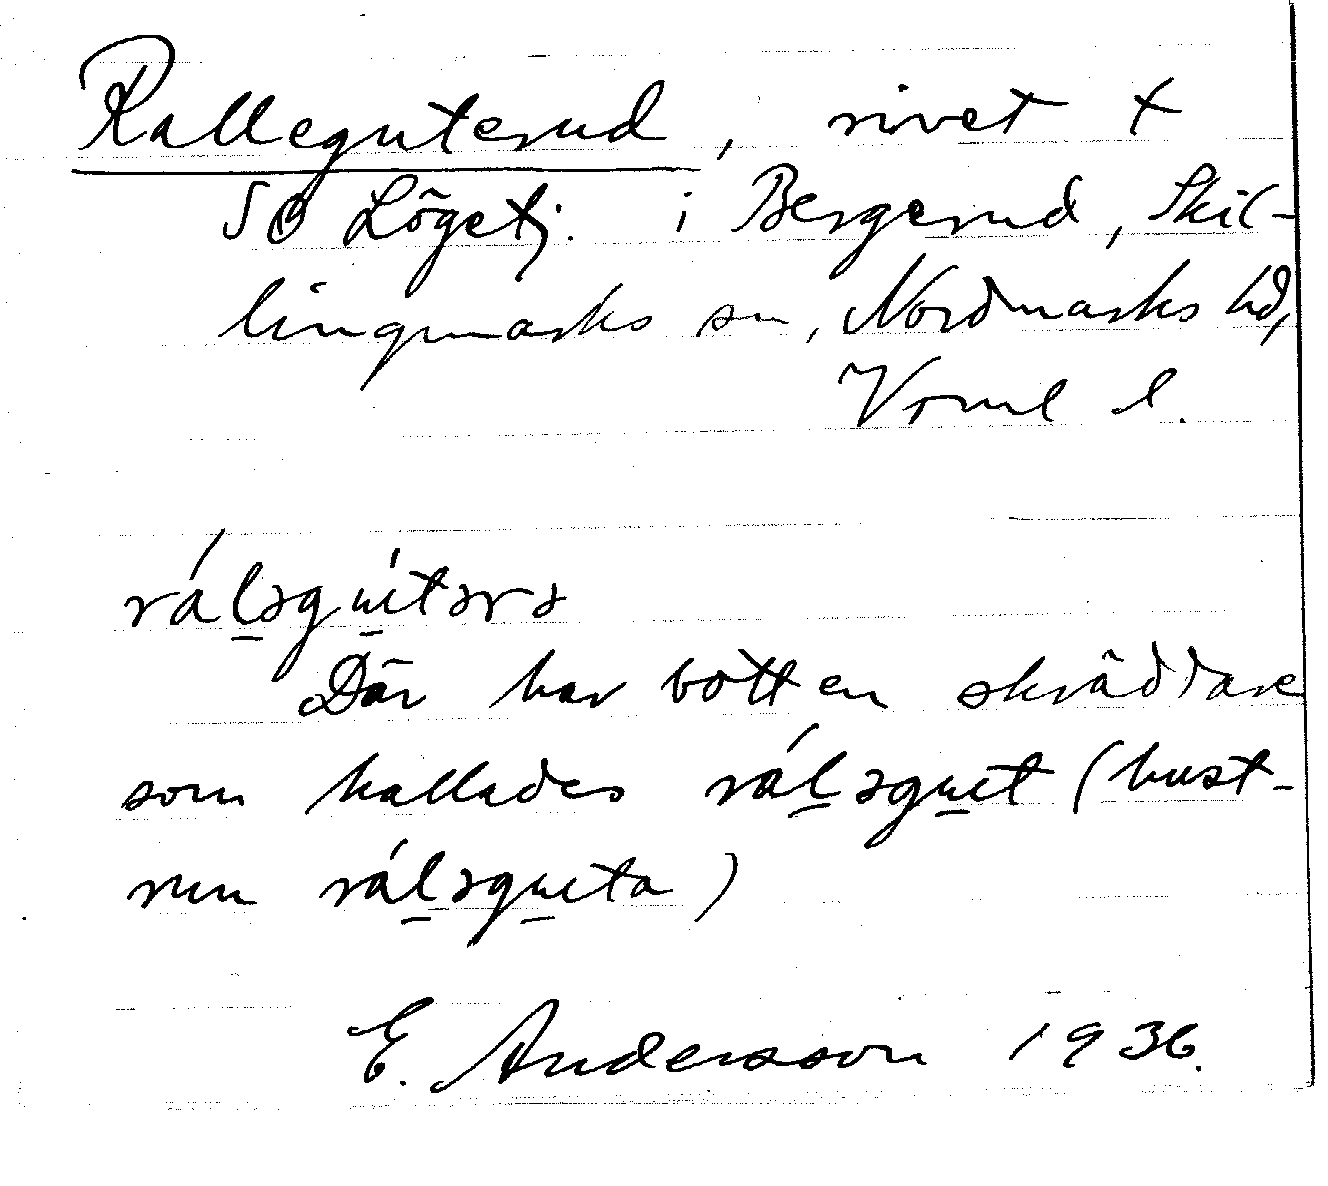 Ralleguterud, rivet t
SO Lögetj. i Bergerud, Skil-
lingmarks sn, Nordmarks hd,
Vrml l.
rál̠əgu̠tərə
Där har bott en skräddare
som kallades rál̠əgu̠t (hust-
run rál̠əgu̠ta)
E. Andersson 1936.